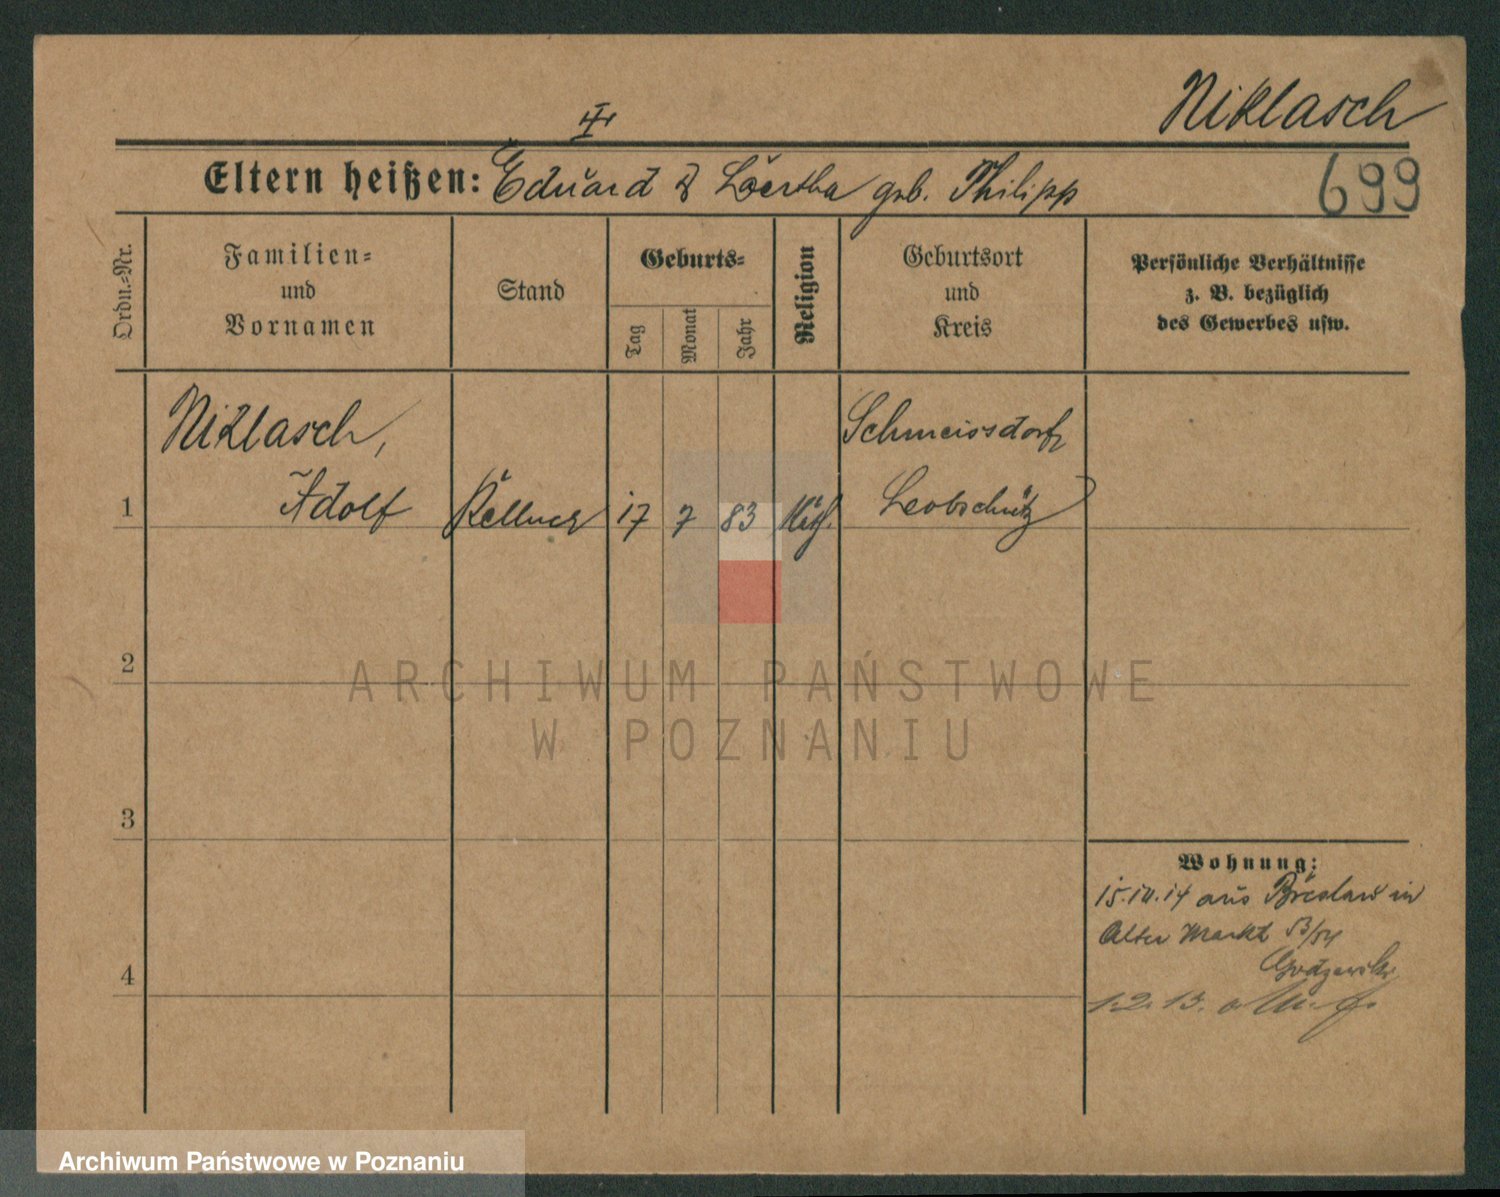 Niklasch
Eltern heißen: Eduard & Bertha geb. Philipp
699
Ordn.-Nr.
Familien=
und
Vornamen
Stand
Geburts=
Tag
Monat
Jahr
Religion
Geburtsort
und
Kreis
Persönliche Verhältnisse
z. B. bezüglich
des Gewerbes usw.
Niklasch,
Schmeissdorf
1 Adolf Kellner 17 7 83 Kath. Leobschütz
2
ARCHIWUM PAŃSTWOWE
W POZNANIU
3
Wohnung:
aus Breslau in
Alter Markt
4
Archiwum Państwowe w Poznaniu